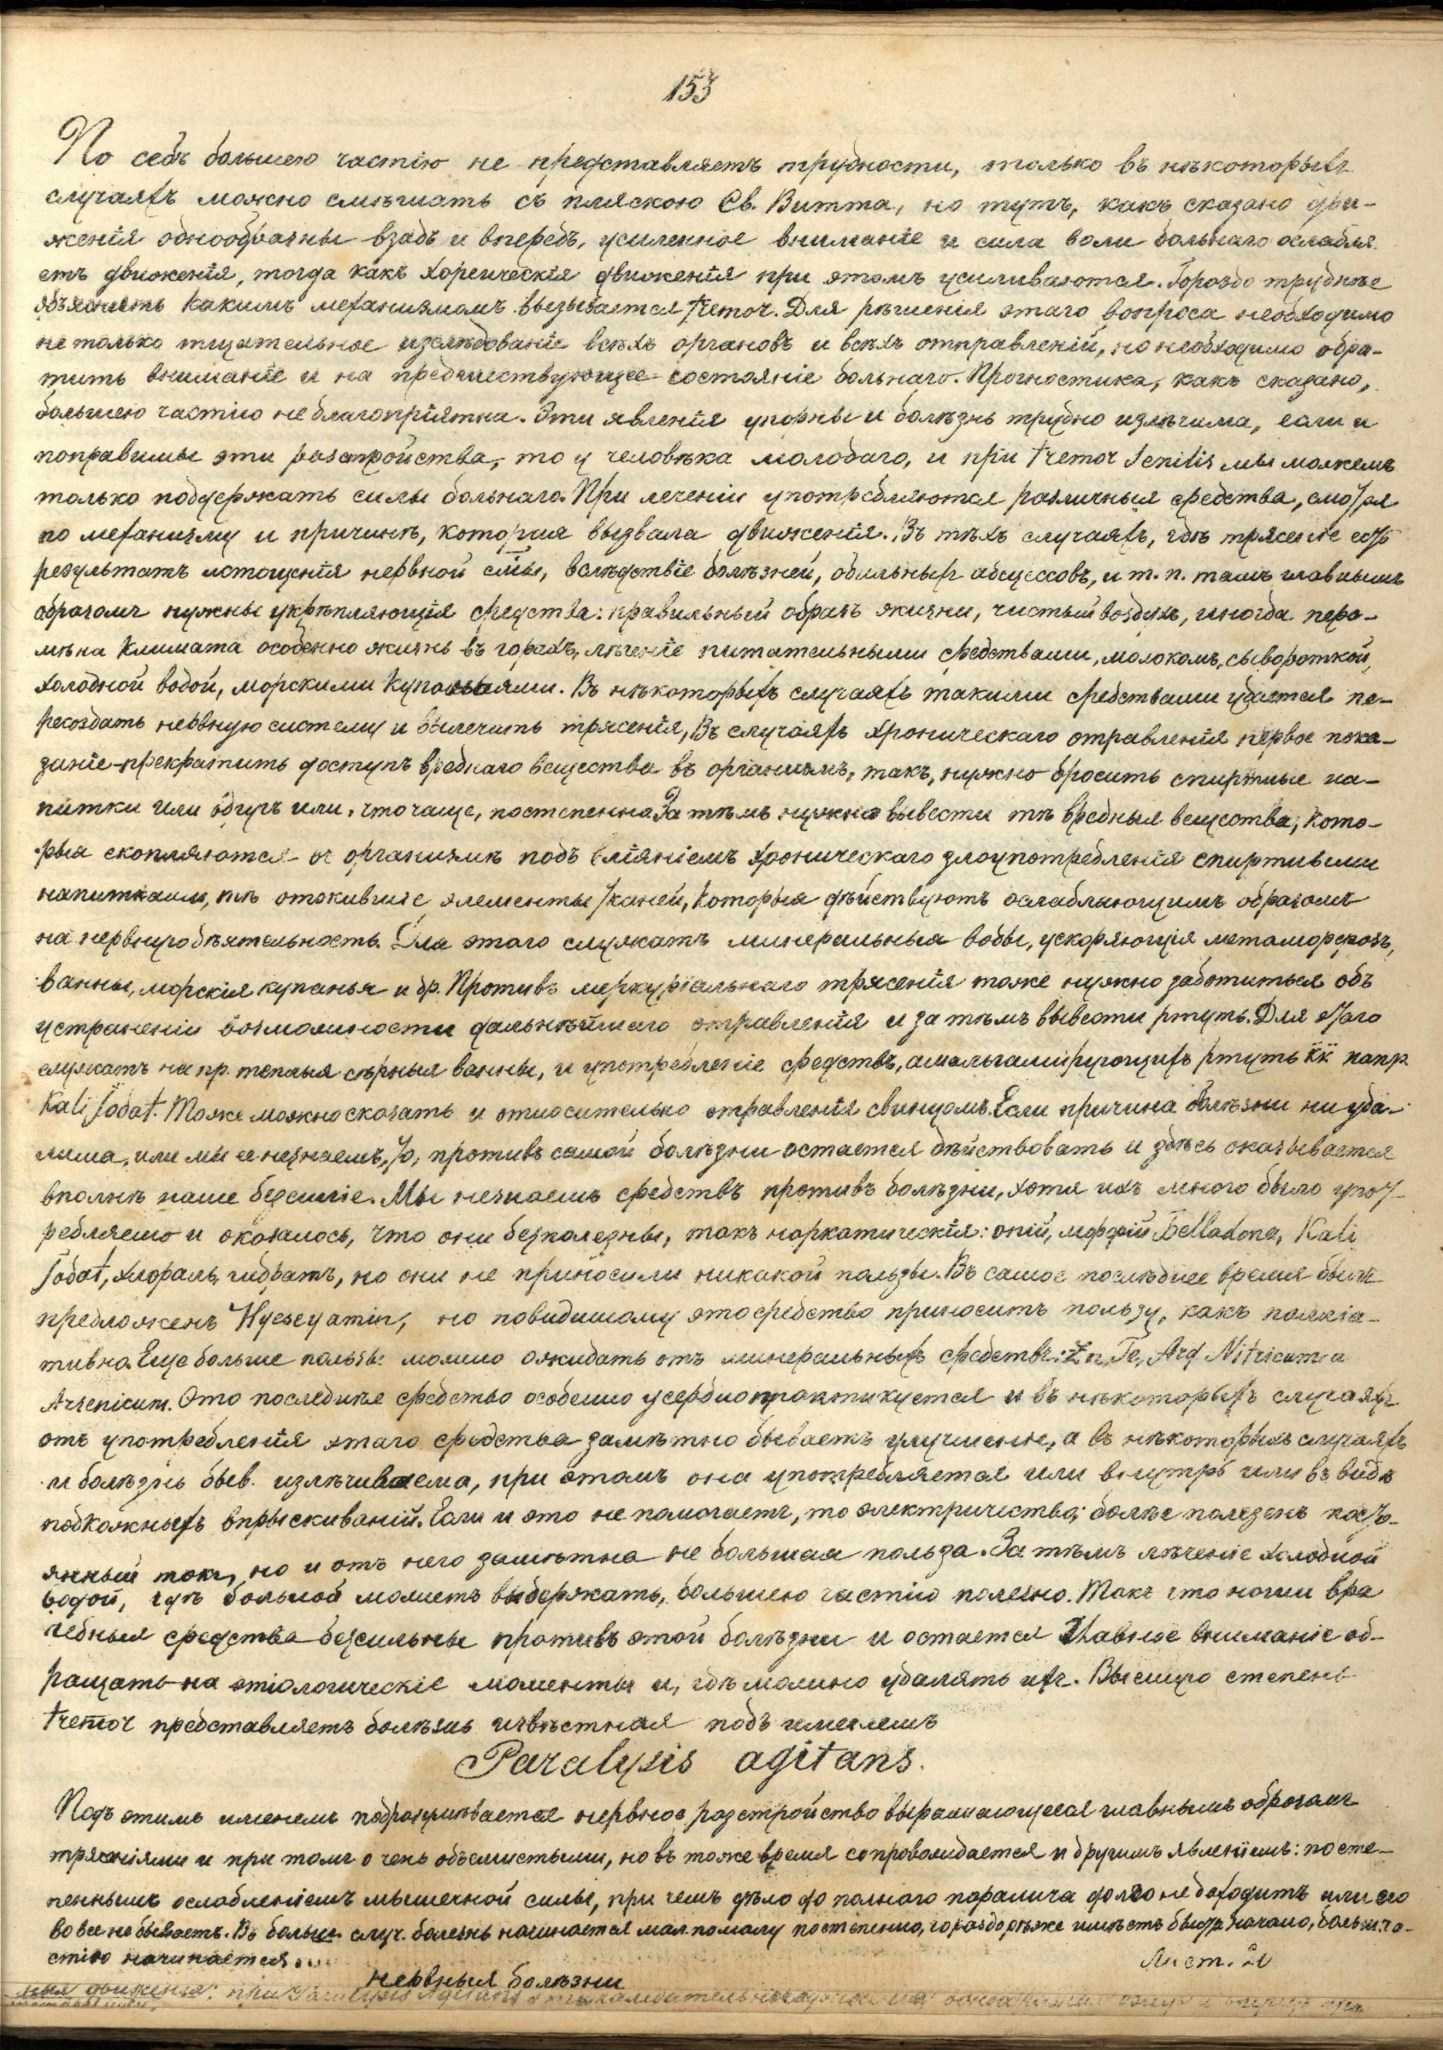 153
По себѣ большею частію не представляетъ трудности, только въ нѣкоторыхъ
случаяхъ можно смѣшать съ пляскою Св. Витта, но тутъ, какъ сказано дви-
женія однообразны взадъ и впередъ, усиленное вниманіе и сила воли больнаго ослабля
етъ движенія, тогда какъ хореическія движенія при этомъ усиливаются. Гораздо труднѣе
объяснить какимъ механизмомъ вызывается tremor. Для рѣшенія этаго вопроса необходимо
не только тщательное изслѣдованіе всѣхъ органовъ и всѣхъ отправленій, но необходимо обра-
тить вниманіе и на предшествующее состояніе больнаго. Прогностика, какъ сказано,
большею частію не благопріятна. Эти явленія упорны и болѣзнь трудно излѣчима, если и
поправимы эти разстройства, то у человѣка молодаго, и при tremor senilis мы можемъ
только поддержать силы больнаго. При леченіи употребляются различныя средства, смотря
по механизму и причинѣ, которая вызвала движенія. Въ тѣхъ случаяхъ, гдѣ трясеніе есть
результатъ истощенія нервной сис̅мы, вслѣдствіе болѣзней, обильныхъ абсцессовъ, и т. п. тамъ главнымъ
образомъ нужны укрѣпляющія средства: правильный образъ жизни, чистый воздухъ, иногда пере-
мѣна климата особенно жизнь въ горахъ, лѣченіе питательными средствами, молокомъ, сывороткой,
холодной водой, морскими купаньями. Въ нѣкоторыхъ случаяхъ такими средствами удается пе-
ресоздать нервную систему и вылечить трясенія, Въ случаяхъ хроническаго отравленія первое пока-
заніе – прекратить доступъ вреднаго вещества въ организмъ, такъ, нужно бросить спиртные на-
питки или вдругъ или, что чаще, постепенно. За тѣмъ нужно вывести тѣ вредныя вещества, кото-
рыя скопляются въ организмѣ подъ вліяніемъ хроническаго злоупотребленія спиртными
напитками, тѣ отжившіе элементы тканей, которыя дѣйствуютъ ослабляющимъ образомъ
на нервную дѣятельность. Для этаго служатъ минеральныя воды, ускоряющія метаморфозъ,
ванны, морскія купанья и др. Противъ меркуріальнаго трясенія тоже нужно заботиться объ
устраненіи возможности дальнѣйшаго отравленія и за тѣмъ вывести ртуть. Для этаго
служатъ напр. теплыя сѣрныя ванны, и употребленіе средствъ, амальгамирующихъ ртуть напр.
Kali Jodat. Тоже можно сказать и относительно отравленія свинцомъ. Если причина болѣзни ни уда-
лима, или мы ее незнаемъ, то, противъ самой болѣзни остается дѣйствовать и здѣсь оказывается
вполнѣ наше безсиліе. Мы незнаемъ средствъ противъ болѣзни, хотя ихъ много было упот-
ребляемо и оказалось, что они безполезны, такъ наркатическія: опій, морфій Belladona, Kali
Jodat, хлораль, гидратъ, но они не приносили никакой пользы. Въ самое послѣднее время былъ
предложенъ Hycscyamin, но повидимому это средство приноситъ пользу, какъ
тивно. Еще больше пользы можно ожидать отъ минеральныхъ средствъ: Zn, Fe, Arg Nitricum и
Arsenicum. Это последнее средство особенно усердно практикуется и въ нѣкоторыхъ случаяхъ
отъ употребленія этаго средства замѣтно бываетъ улучшеніе, а въ нѣкоторыхъ случаяхъ
и болѣзнь быв. излѣчиваема, при этомъ она употребляется или внутрь или въ видѣ
подкожныхъ впрыскиваній. Если и это не помогаетъ, то электричество; болѣе полезенъ посто-
янный токъ, но и отъ него замѣтна не большая польза. За тѣмъ лѣченіе холодной
водой, гдѣ больной можетъ выдержать, большею частію полезно. Такъ что наши вра
чебныя средства безсильны противъ этой болѣзни и остается главное вниманіе об-
ращать на этіологическіе моменты и, гдѣ можно удалять ихъ. Высшую степень
tremor представляетъ болѣзнь извѣстная подъ именемъ
Paralysis agitans.
Подъ этимъ именемъ подразумѣвается нервное разстройство выражающееся главнымъ образомъ
трясеніями и при томъ очень объемистыми, но въ тоже время сопровождается и другимъ явленіемъ: посте-
пеннымъ ослабленіемъ мышечной силы, при чемъ дѣло до полнаго паралича долго не доходитъ или его
во все не бываетъ. Въ больш. случ. болезнь начинается мал. помалу постепенно, гораздо рѣже имѣетъ быстр. начало, больш. ча-
стію начинается
Лист. 20
нервныя болѣзни